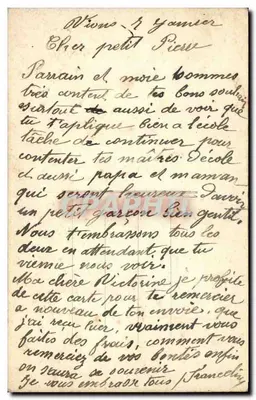 Vions, 4 Janvier
Cher petit Pierre
Parrain et moie sommes
très content de tes bons souhaits
surtout de aussi de voir que
tu t'aplique bien a l'école
tâche de continuer pour
contenter tes maîtres d'école
et aussi papa et maman
qui seront heureux d'avoir
un petit garçon bien gentil.
Nous t'embrassons tous les
deux en attendant que tu
vienne nous voir.
Ma chère Victorine je profite
de cette carte pour te remercier
a nouveau de ton envoie que
j'ai reçu hier, vraiment vous
faites des frais, comment vous
remerciez de vos bontés enfin
on saura se souvenir
Je vous embrasse tous